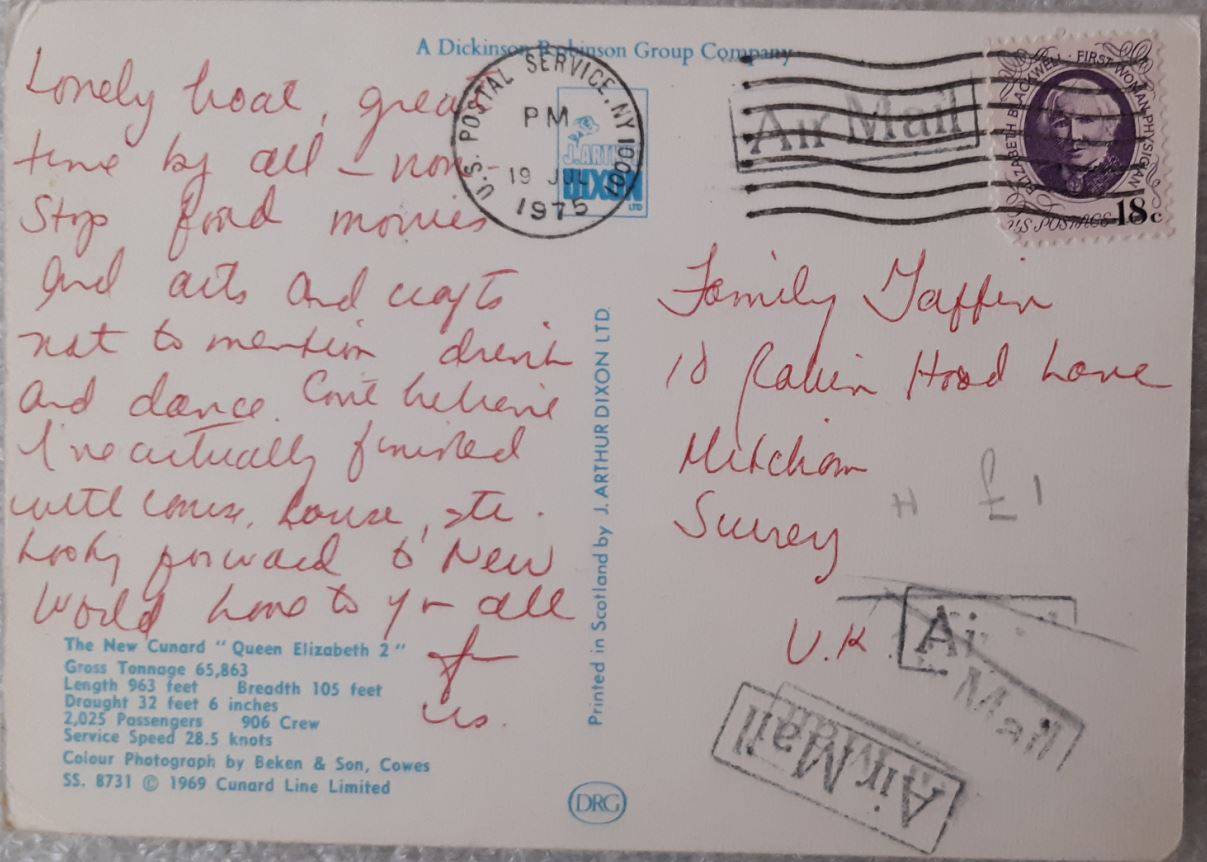 A Dickinson Robinson Group Company
Lovely boat, great
time by all – non
Stop food movies
and arts and crafts
not to mention drink
and dance. Can't believe
I've actually finished
with house, etc.
Looking forward to New
World love to yr all
fr
us.
The New Cunard "Queen Elizabeth 2"
Gross Tonnage 65,863
Length 963 feet Breadth 105 feet
Draught 32 feet 6 inches
2,025 Passengers 906 Crew
Service Speed 28.5 knots
Colour Photograph by Beken & Son, Cowes
SS. 8731 © 1969 Cunard Line Limited
Printed in Scotland by J. ARTHUR DIXON LTD.
DRG
J. ARTHUR
DIXON
LTD
U.S. POSTAL SERVICE, NY 1001
PM
19 JUL
1975
Air Mail
ELIZABETH BLACKWELL · FIRST WOMAN PHYSICIAN
U.S. POSTAGE 18c
Family Jaffin
10 Robin Hood Lane
Mitcham
Surrey
U.K
£1
Air
Mail
Air Mail